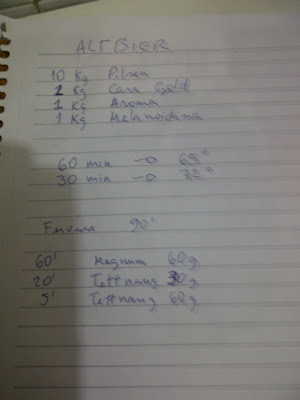 ALTBIER
10 Kg Pilsen
1 Kg Cara Gold
1 Kg Aroma
1 Kg Melanoidina
60 min → 65°
30 min → 72°
Fervura 90'
60' Magnum 60g
20' Tettnang 30g
5' Tettnang 60g